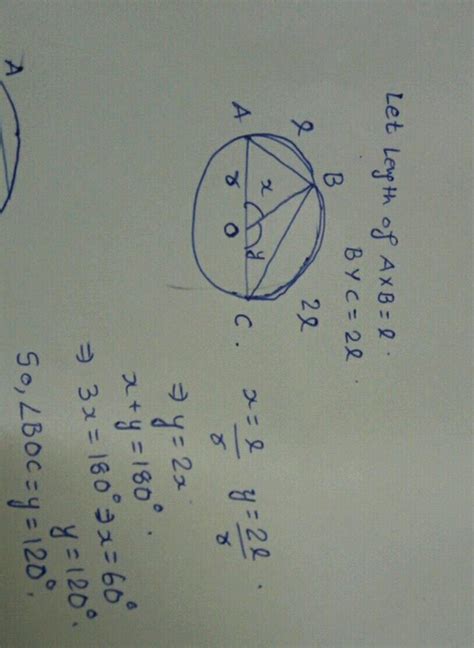 Let Length of AXB = l.
BYC = 2l.
B
l
2l
A
r
x
O
y
C.
x = l/r y = 2l/r.
⇒ y = 2x
x + y = 180°.
⇒ 3x = 180° ⇒ x = 60°
y = 120°.
So, ∠BOC = y = 120°.
A